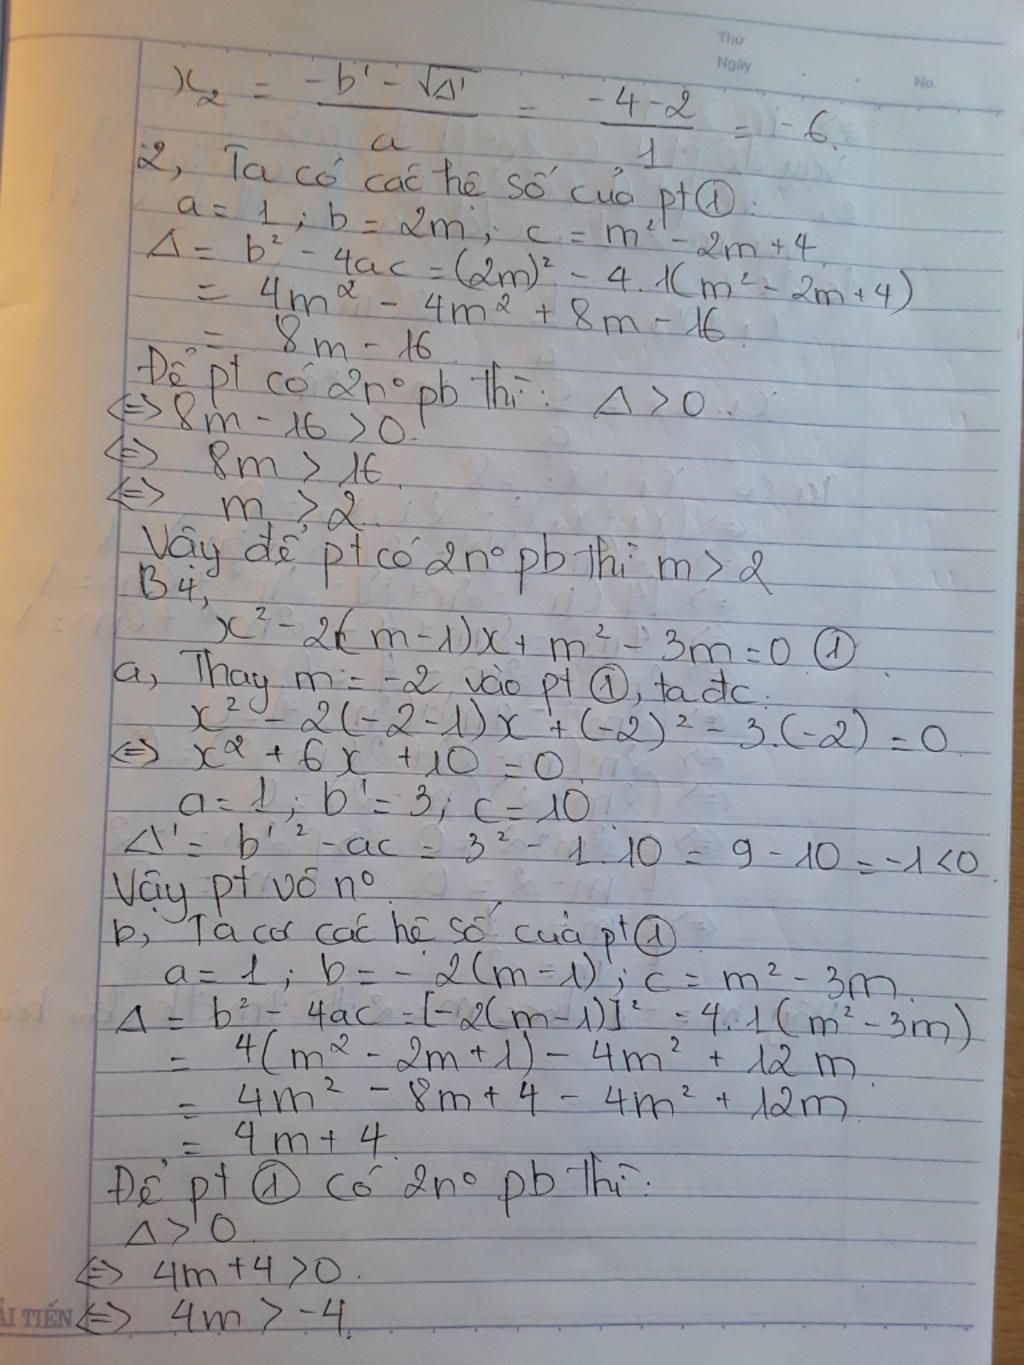 Thứ
Ngày
No.
x₂ = (-b' - √Δ')/a = (-4-2)/1 = -6.
2, Ta có các hệ số của pt ①:
a = 1; b = 2m; c = m² - 2m + 4.
Δ = b² - 4ac = (2m)² - 4.1(m² - 2m + 4)
= 4m² - 4m² + 8m - 16.
= 8m - 16.
Để pt có 2n° pb thì: Δ > 0.
⇔ 8m - 16 > 0.
⇔ 8m > 16.
⇔ m > 2.
Vậy để pt có 2n° pb thì m > 2
B4,
x² - 2(m-1)x + m² - 3m = 0 ①
a, Thay m = -2 vào pt ①, ta đc.
x² - 2(-2-1)x + (-2)² - 3.(-2) = 0.
⇔ x² + 6x + 10 = 0.
a = 1; b' = 3; c = 10.
Δ' = b'² - ac = 3² - 1.10 = 9 - 10 = -1 < 0.
Vậy pt vô n°
b, Ta có các hệ số của pt ①
a = 1; b = -2(m-1); c = m² - 3m.
Δ = b² - 4ac = [-2(m-1)]² - 4.1(m² - 3m)
= 4(m² - 2m + 1) - 4m² + 12m.
= 4m² - 8m + 4 - 4m² + 12m.
= 4m + 4.
Để pt ① có 2n° pb thì:
Δ > 0.
⇔ 4m + 4 > 0.
ẢI TIẾN ⇔ 4m > -4.